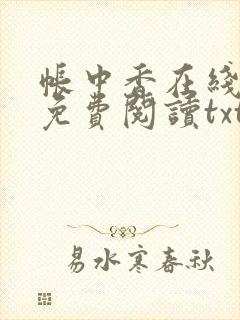 帳中香在綫
免費閱讀txt
易水寒春秋